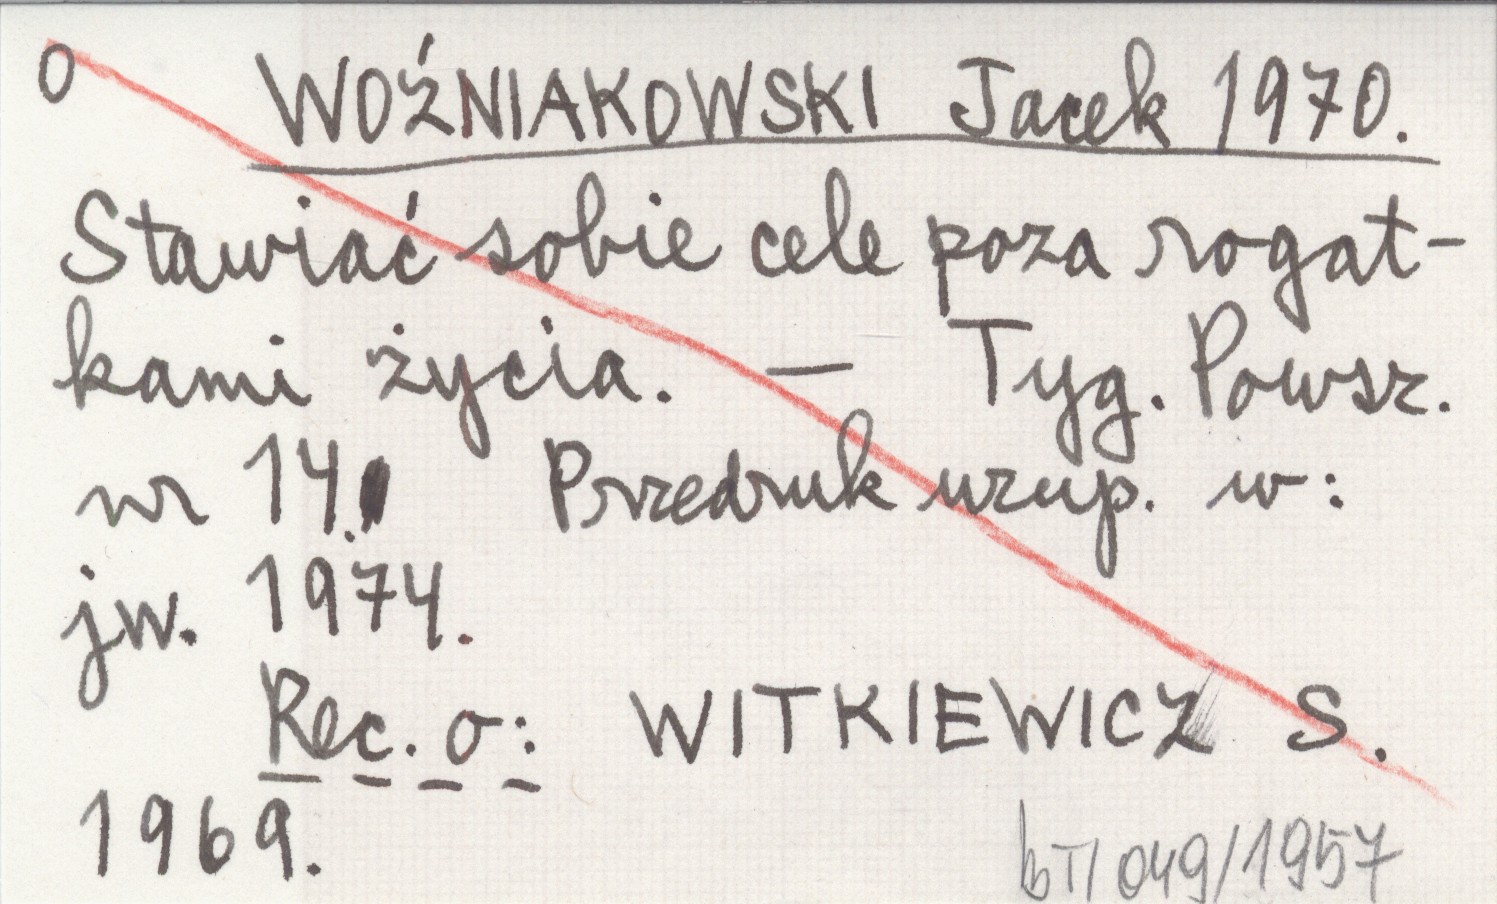 O WOŹNIAKOWSKI Jacek 1970.
Stawiać sobie cele poza rogat-
kami życia. — Tyg. Powsz.
nr 14. Przedruk uzup. w:
jw. 1974.
Rec. o: WITKIEWICZ S.
1969.
bT/049/1957